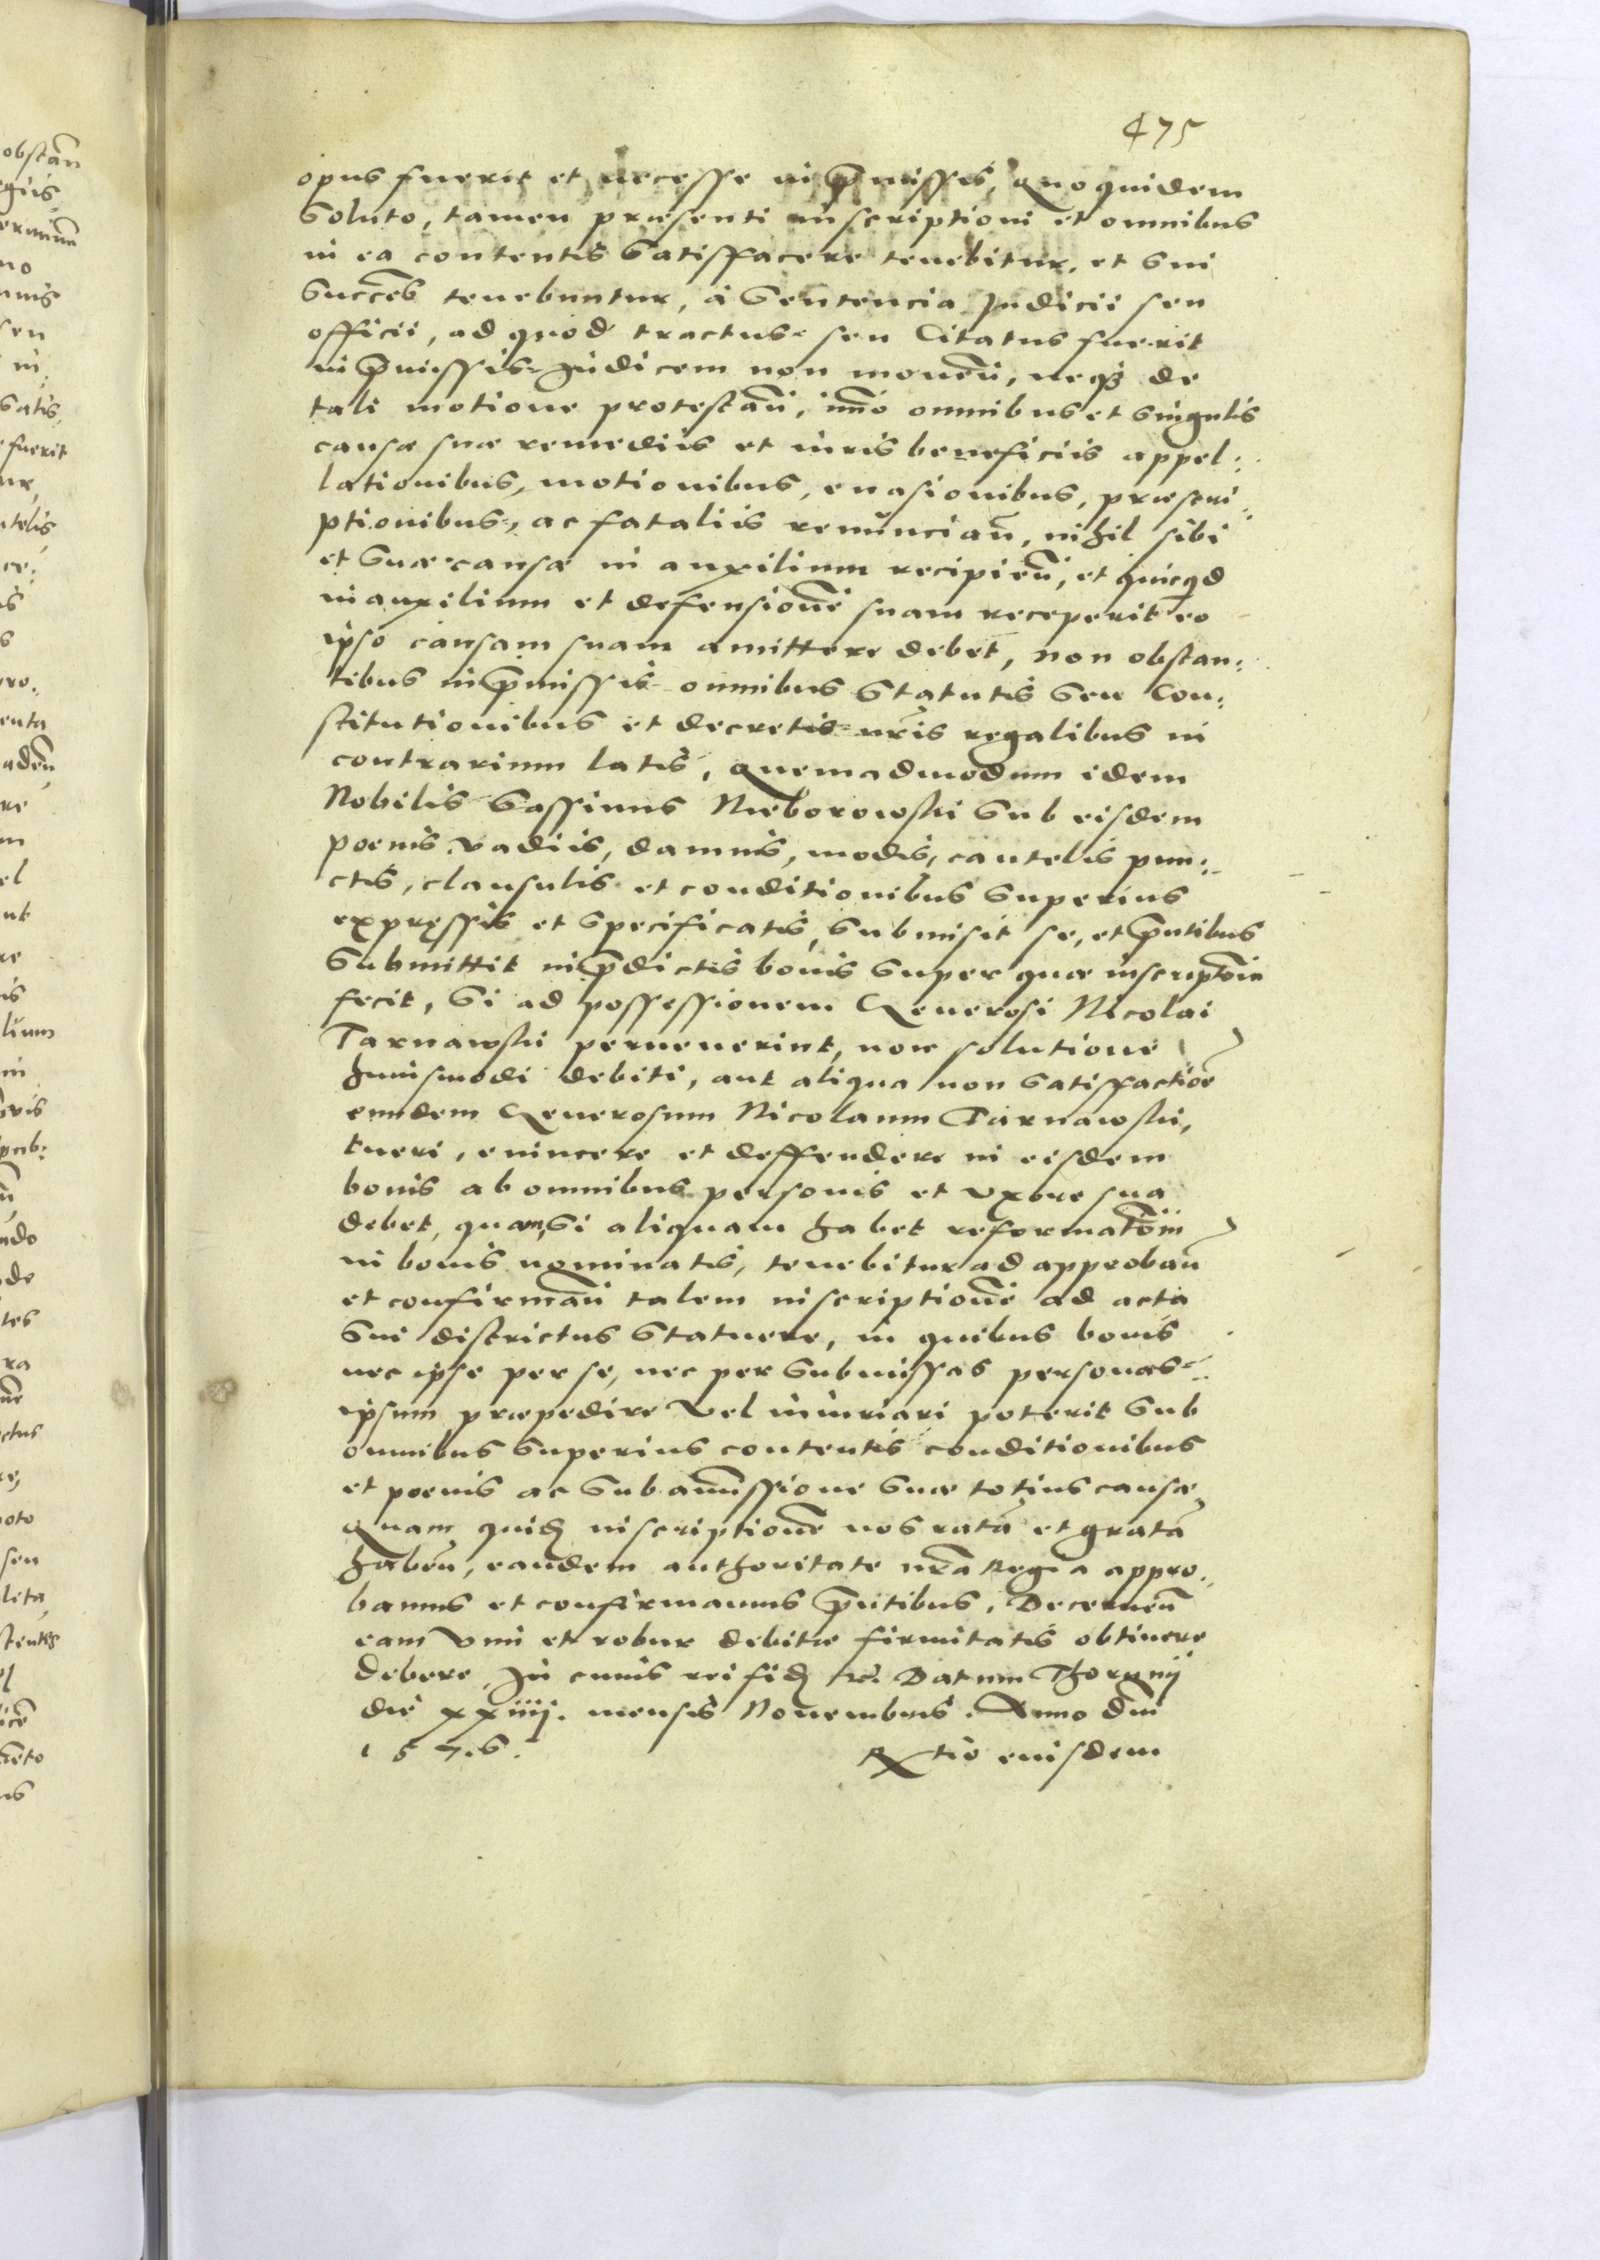 475
opus fuerit et necesse in p̄missis, quo quidem
soluto, tamen præsenti inscriptioni et omnibus
in ea contentis satisffacere tenebitur, et sui
succeš tenebuntur, à sentencia Judicii seu
officii, ad quod tractus seu Citatus fuerit
in p̄missis Judicem non moueñ, neqȝ de
tali motione protestañ, im̄o omnibus et singulis
causæ suæ remediis et iuris beneficiis appel:
lationibus, motionibus, euasionibus, præscri:
ptionibus, ac fataliis renunciañ, nihil sibi
et suæ causæ in auxilium recipieñ, et quicqd
in auxilium et defensionē suam receperit eo
ipso causam suam amittere debet, non obstan:
tibus in p̄missis omnibus statutis seu Con:
stitutionibus et decretis nr̄is regalibus in
contrarium latis, quemadmodum idem
Nobilis Gassimus Nieborowski sub eisdem
poenis vadiis, damnis, modis, cautelis pun:
ctis, clausulis et conditionibus superius
expręssis et specificatis, submisit se, et p̄ntibus
submittit in p̄dictis bonis super quæ inscriptōīa
fecit, si ad possessionem Generosi Nicolai
Tarnawski peruenerint, non solutione
huiusmodi debiti, aut aliqua non satisfactiōē
eundem Generosum Nicolaum Tarnawski,
tueri, euincere et deffendere in eisdem
bonis ab omnibus personis et vxore sua
debet, quam, si aliquam habet reformatōīī
in bonis nominatis, tenebitur ad approbañ
et confirmañ talem inscriptionē ad acta
sui districtus statuere, in quibus bonis
nec ipse per se, nec per submissas personas
ipsum præpedire vel iniuriari poterit sub
omnibus superius contentis conditionibus
et poenis ac sub amissione suæ totius causæ
Quam quid inscriptionē nos ratā et gratā
habeñ, eandem authoritate nr̄a Regia appro:
bamus et confirmamus p̄ntibus, Decerneñ
eam vim et robur debitæ firmitatis obtinere
debere, In cuius rei fid etc. Datum Thorunij
die xxiiij. mensis Nouembris. Anno dn̄i
1576. Rtio eiusdem